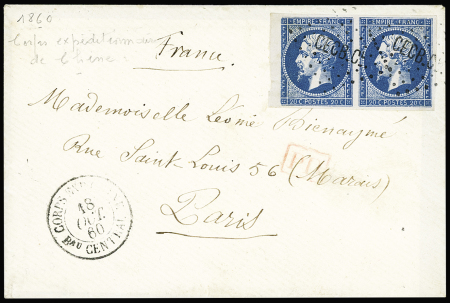 1860
Corps expéditionnaire
de Chine
France
EMPIRE FRANC.
EMPIRE FRANC.
CECB.C
CECB.C
20 C. POSTES 20 C.
20 C. POSTES 20 C.
Mademoiselle Léonie Bienaymé
Rue Saint-Louis 56 (Marais)
Paris
CORPS
18
OCT.
60
BAU CENTRAL